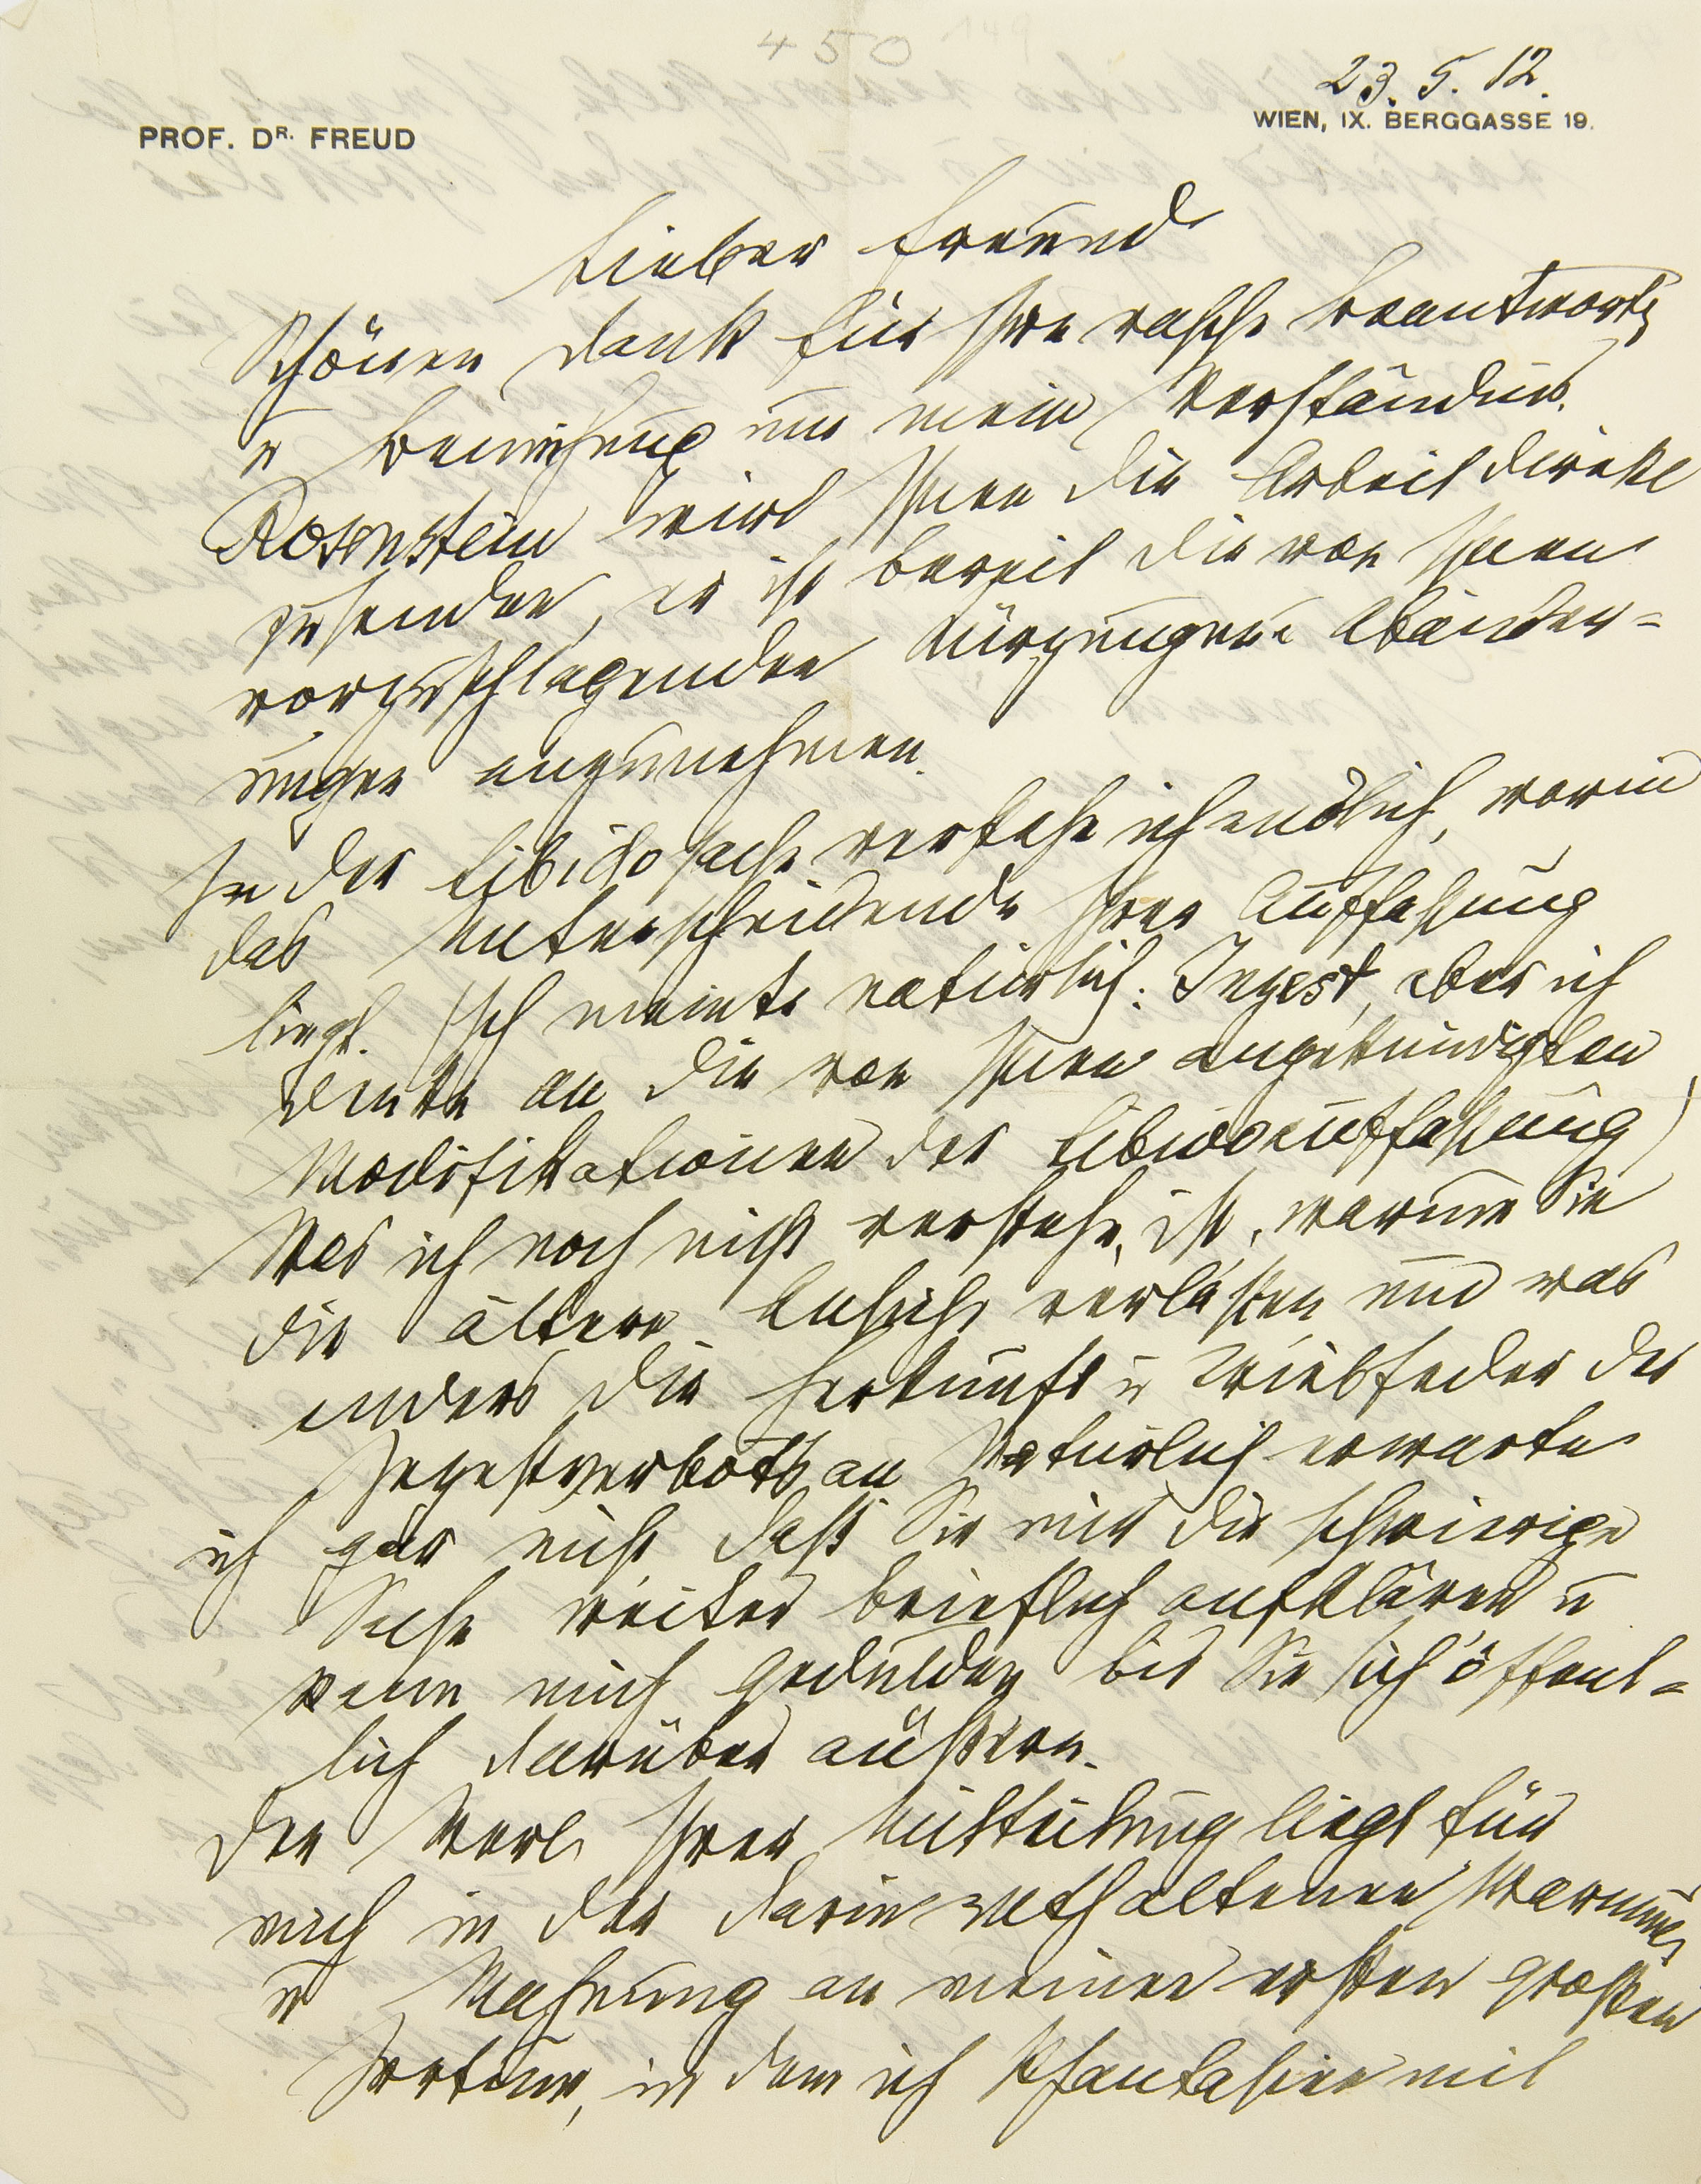 450
23. 5. 12.
WIEN, IX. BERGGASSE 19.
PROF. DR. FREUD
Lieber Freund
Schönen Dank für Ihre rasche Beantwortg
u Bemühung um mein Verständnis.
Rosenstein wird Ihnen die Arbeit direkt
zusenden, er ist bereit die von Ihnen
vorzuschlagenden Kürzungen u Abänder=
ungen anzunehmen.
In der Libidosache verstehe ich endlich, worin
das Unterscheidende Ihrer Auffaßung
liegt. (Ich meinte natürlich: Inzest, aber ich
denke an die von Ihnen angekündigten
Modifikationen der Libidoauffaßung)
Was ich noch nicht verstehe, ist, warum Sie
die ältere Ansicht verlaßen und was
anders die Herkunft u Triebfeder des
Inzestverbots an Natürlich erwarte
ich gar nicht, daß Sie mir die schwierige
Sache weiter brieflich aufklären u
kann mich gedulden bis Sie sich öffent=
lich darüber äußern.
Der Wert Ihrer Mitteilung liegt für
mich in der darin enthaltenen Warnung
u Mahnung an meinen ersten großen
Irrtum, in dem ich Phantasien mit